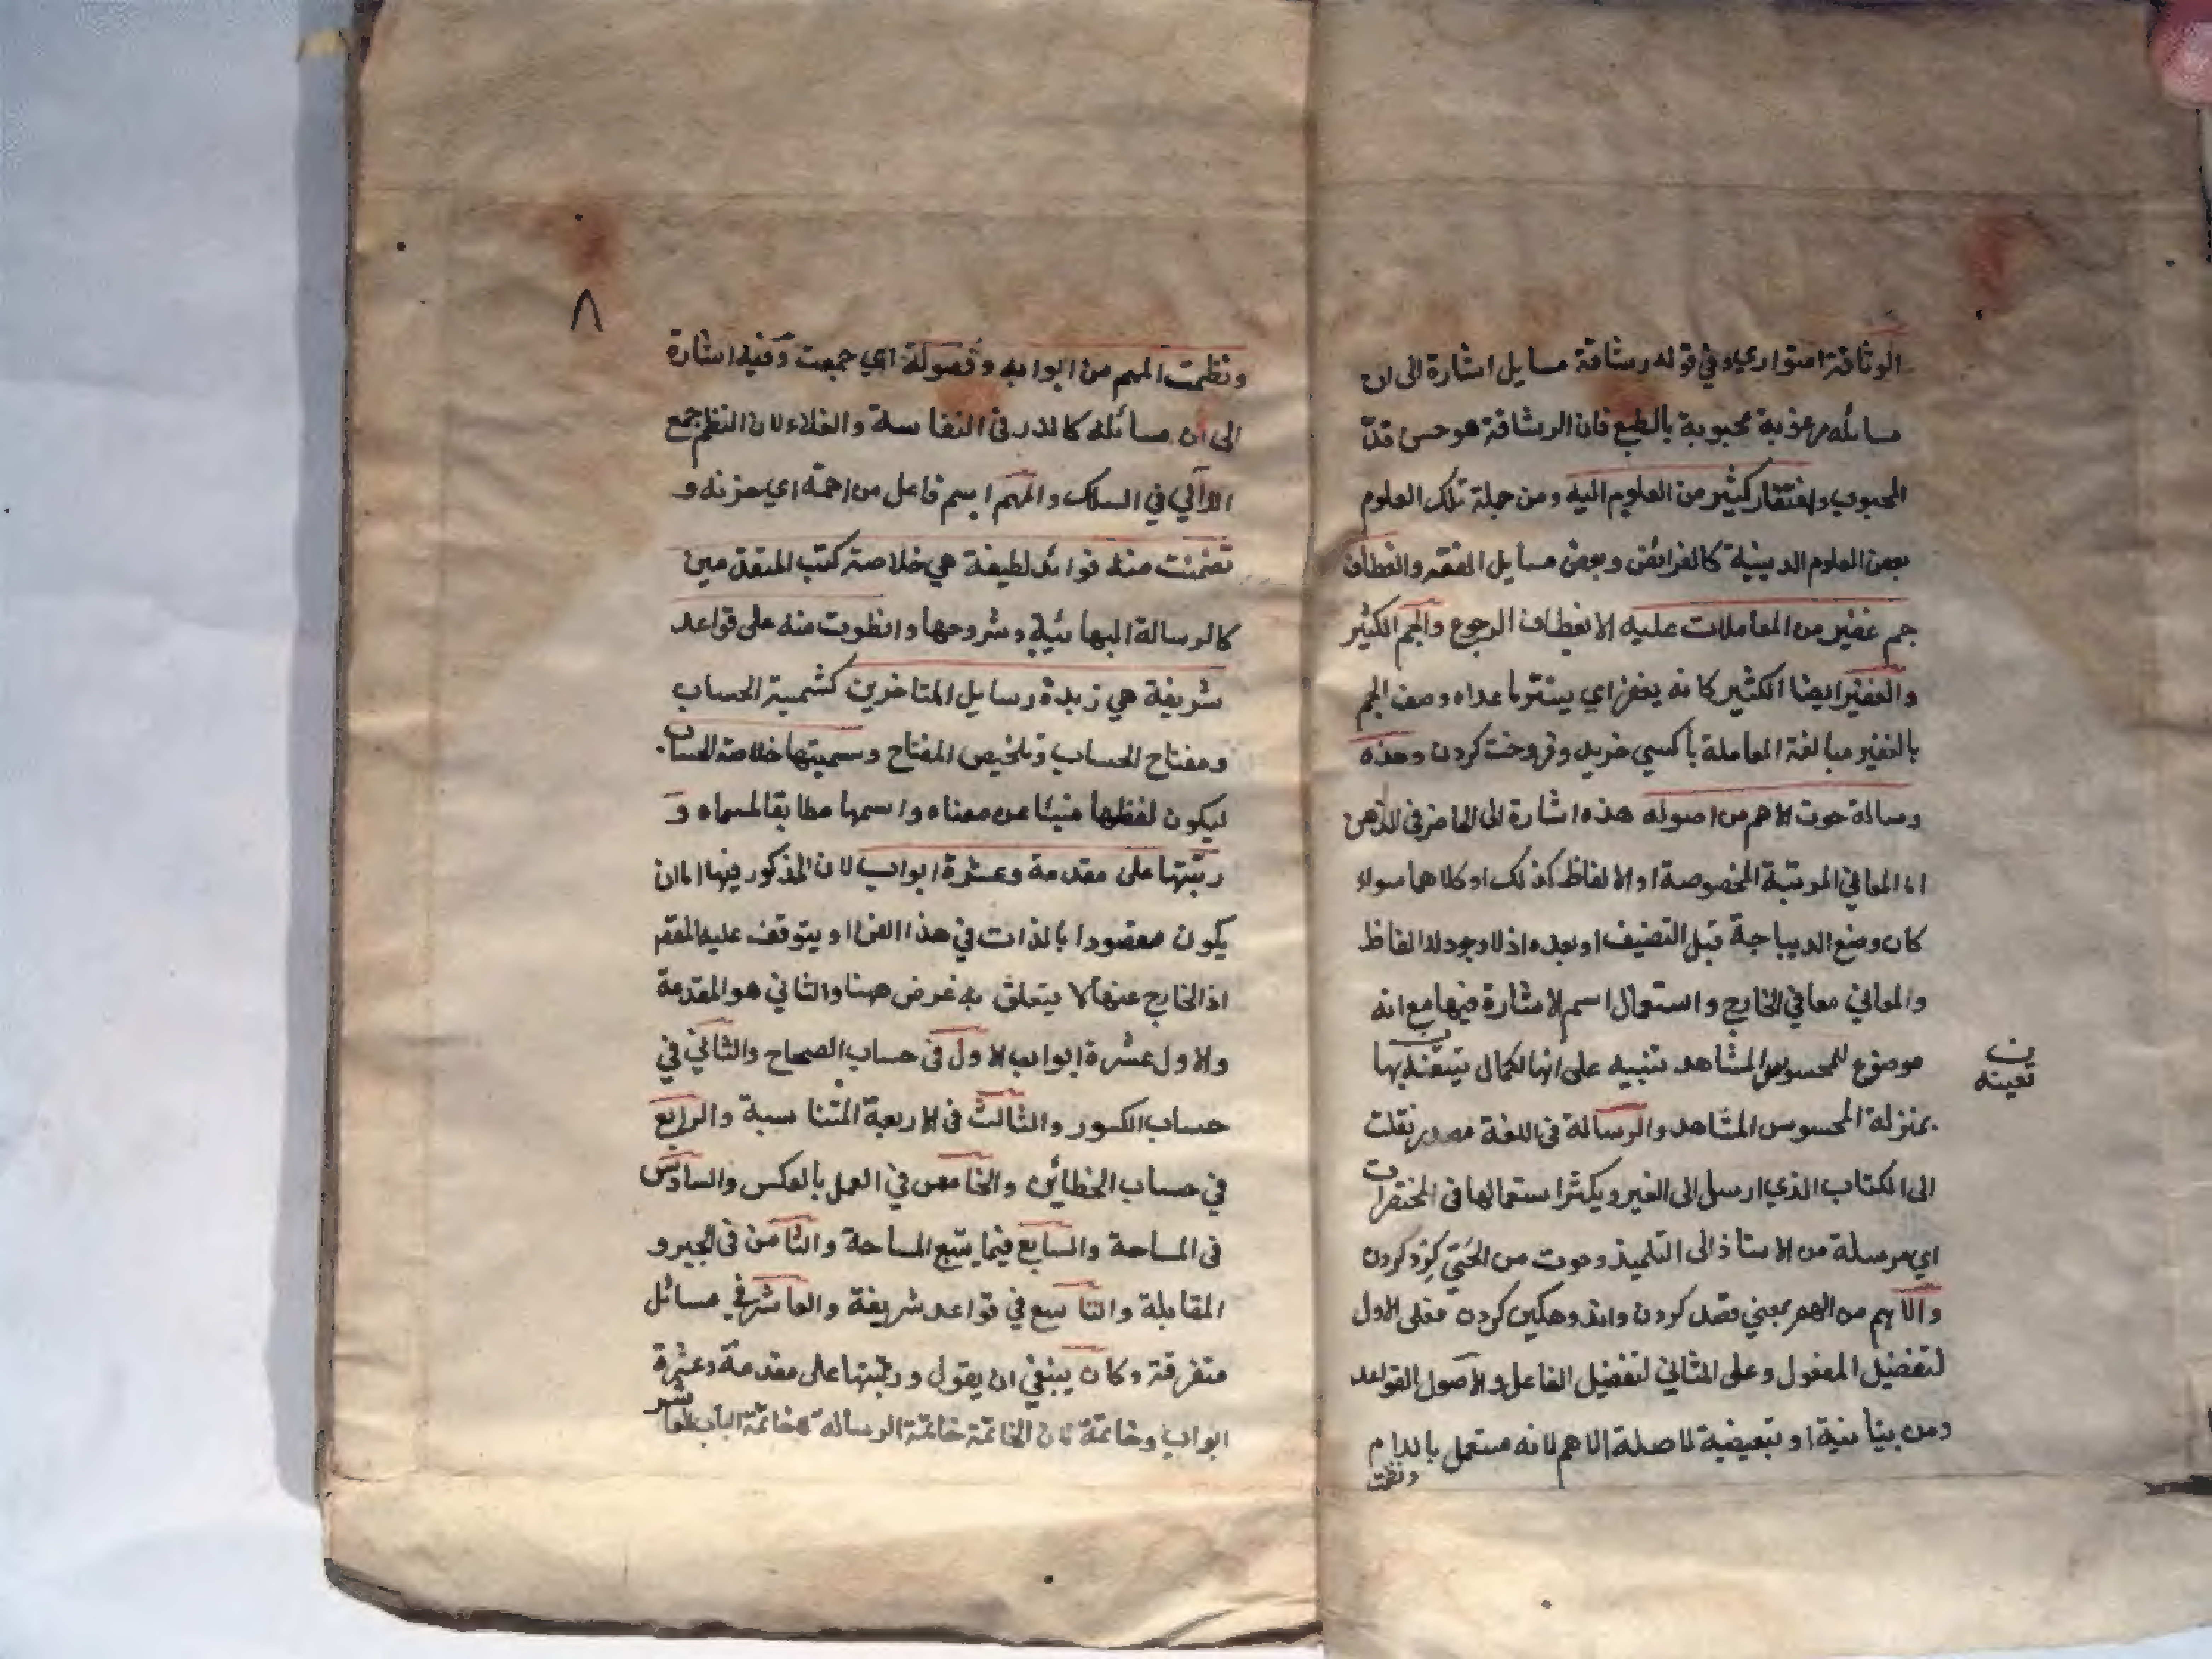 الوثاقة استواري وفي قوله رشاقة مسايل اشارة الى ان
مسائله مرغوبة محبوبة بالطبع فان الرشاقة هو حسن قدّ
المحبوب وافتقار كثير من العلوم اليه ومن جملة تلك العلوم
بعض العلوم الدينية كالفرائض وبعض مسايل الفقه وانعطاف
جم غفير من المعاملات عليه الانعطاف الرجوع والجم الكثير
والغفير ايضا الكثير كانه يغفر اي يستر ما عداه وصف الجم
بالغفير مبالغة المعاملة باكسي خريد وفروخت كردن وهذه
رسالة حوت الاهم من اصوله هذه اشارة الى الحاضر في الذهن
اما المعاني المرتبة المخصوصة او الالفاظ كذلك او كلاهما سواء
كان وضع الديباجة قبل التصنيف او بعده اذ لا وجود للالفاظ
والمعاني معا في الخارج واستعمال اسم الاشارة فيها مع انه
موضوع للمحسوس المشاهد تنبيه على انها لكمال بها
ن
تعينه
بمنزلة المحسوس المشاهد والرسالة في اللغة مصدر نقلت
الى الكتاب الذي ارسل الى الغير ويكثر استعمالها في المختصرات
اي مرسلة من الاستاذ الى التلميذ وحوت من الحتي كرد كردن
والاهم من الهم بمعني قصد كردن واندوهكين كردن فعلى الاول
لتفضيل المفعول وعلى الثاني لتفضيل الفاعل والاصول القواعد
ومن بيانية او تبعيضية لا صلة الاهم لانه مستعمل باللام
ونظمت
٨
ونظمت المهم من ابوابه وفصوله اي جمعت وفيه اشارة
الى ان مسائله كالدر في النفاسة والغلاء لان النظم جمع
اللآلي في السلك والمهم اسم فاعل من اهمه اي حزنه و
تضمنت منه فوائد لطيفة هي خلاصة كتب المتقدمين
كالرسالة البهائية وشروحها وانطوت منه على قواعد
شريفة هي زبدة رسايل المتاخرين كشمسية الحساب
ومفتاح الحساب وتلخيص المفتاح وسميتها خلاصة الحساب
ليكون لفظها منبئا عن معناه واسمها مطابقا لمسماه و
رتبتها على مقدمة وعشرة ابواب لان المذكور فيها اما ان
يكون مقصودا بالذات في هذا الفن او يتوقف عليه المقصد
اذ الخارج عنها لا يتعلق به غرض ههنا والثاني هو المقدمة
والاول عشرة ابواب الاول في حساب الصحاح والثاني في
حساب الكسور والثالث في الاربعة المتناسبة والرابع
في حساب الخطائين والخامس في العمل بالعكس والسادس
في المساحة والسابع فيما يتبع المساحة والثامن في الجبر و
المقابلة والتاسع في قواعد شريفة والعاشر في مسائل
متفرقة وكان ينبغي ان يقول ورتبتها على مقدمة وعشرة
ابواب وخاتمة لان الخاتمة خاتمة الرسالة لا خاتمة الباب العاشر